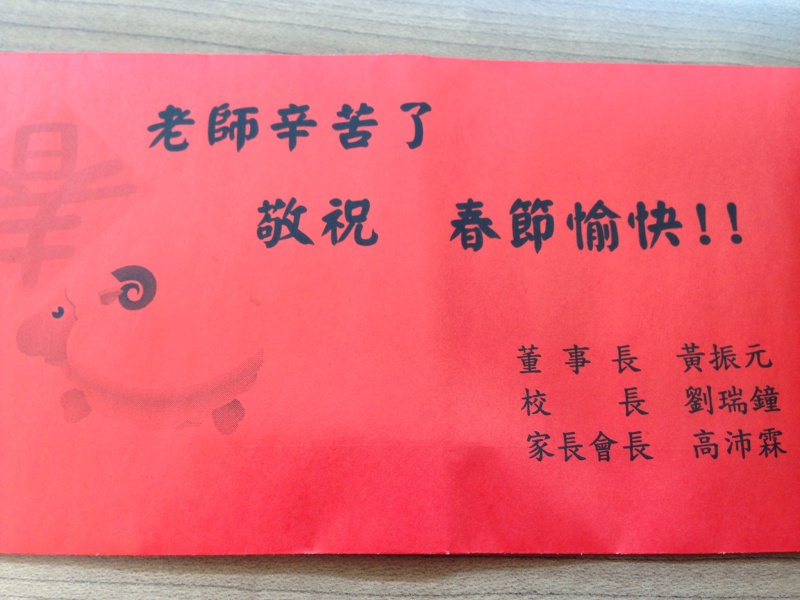 老師辛苦了
敬祝 春節愉快!!
董事長 黃振元
校長 劉瑞鐘
家長會長 高沛霖